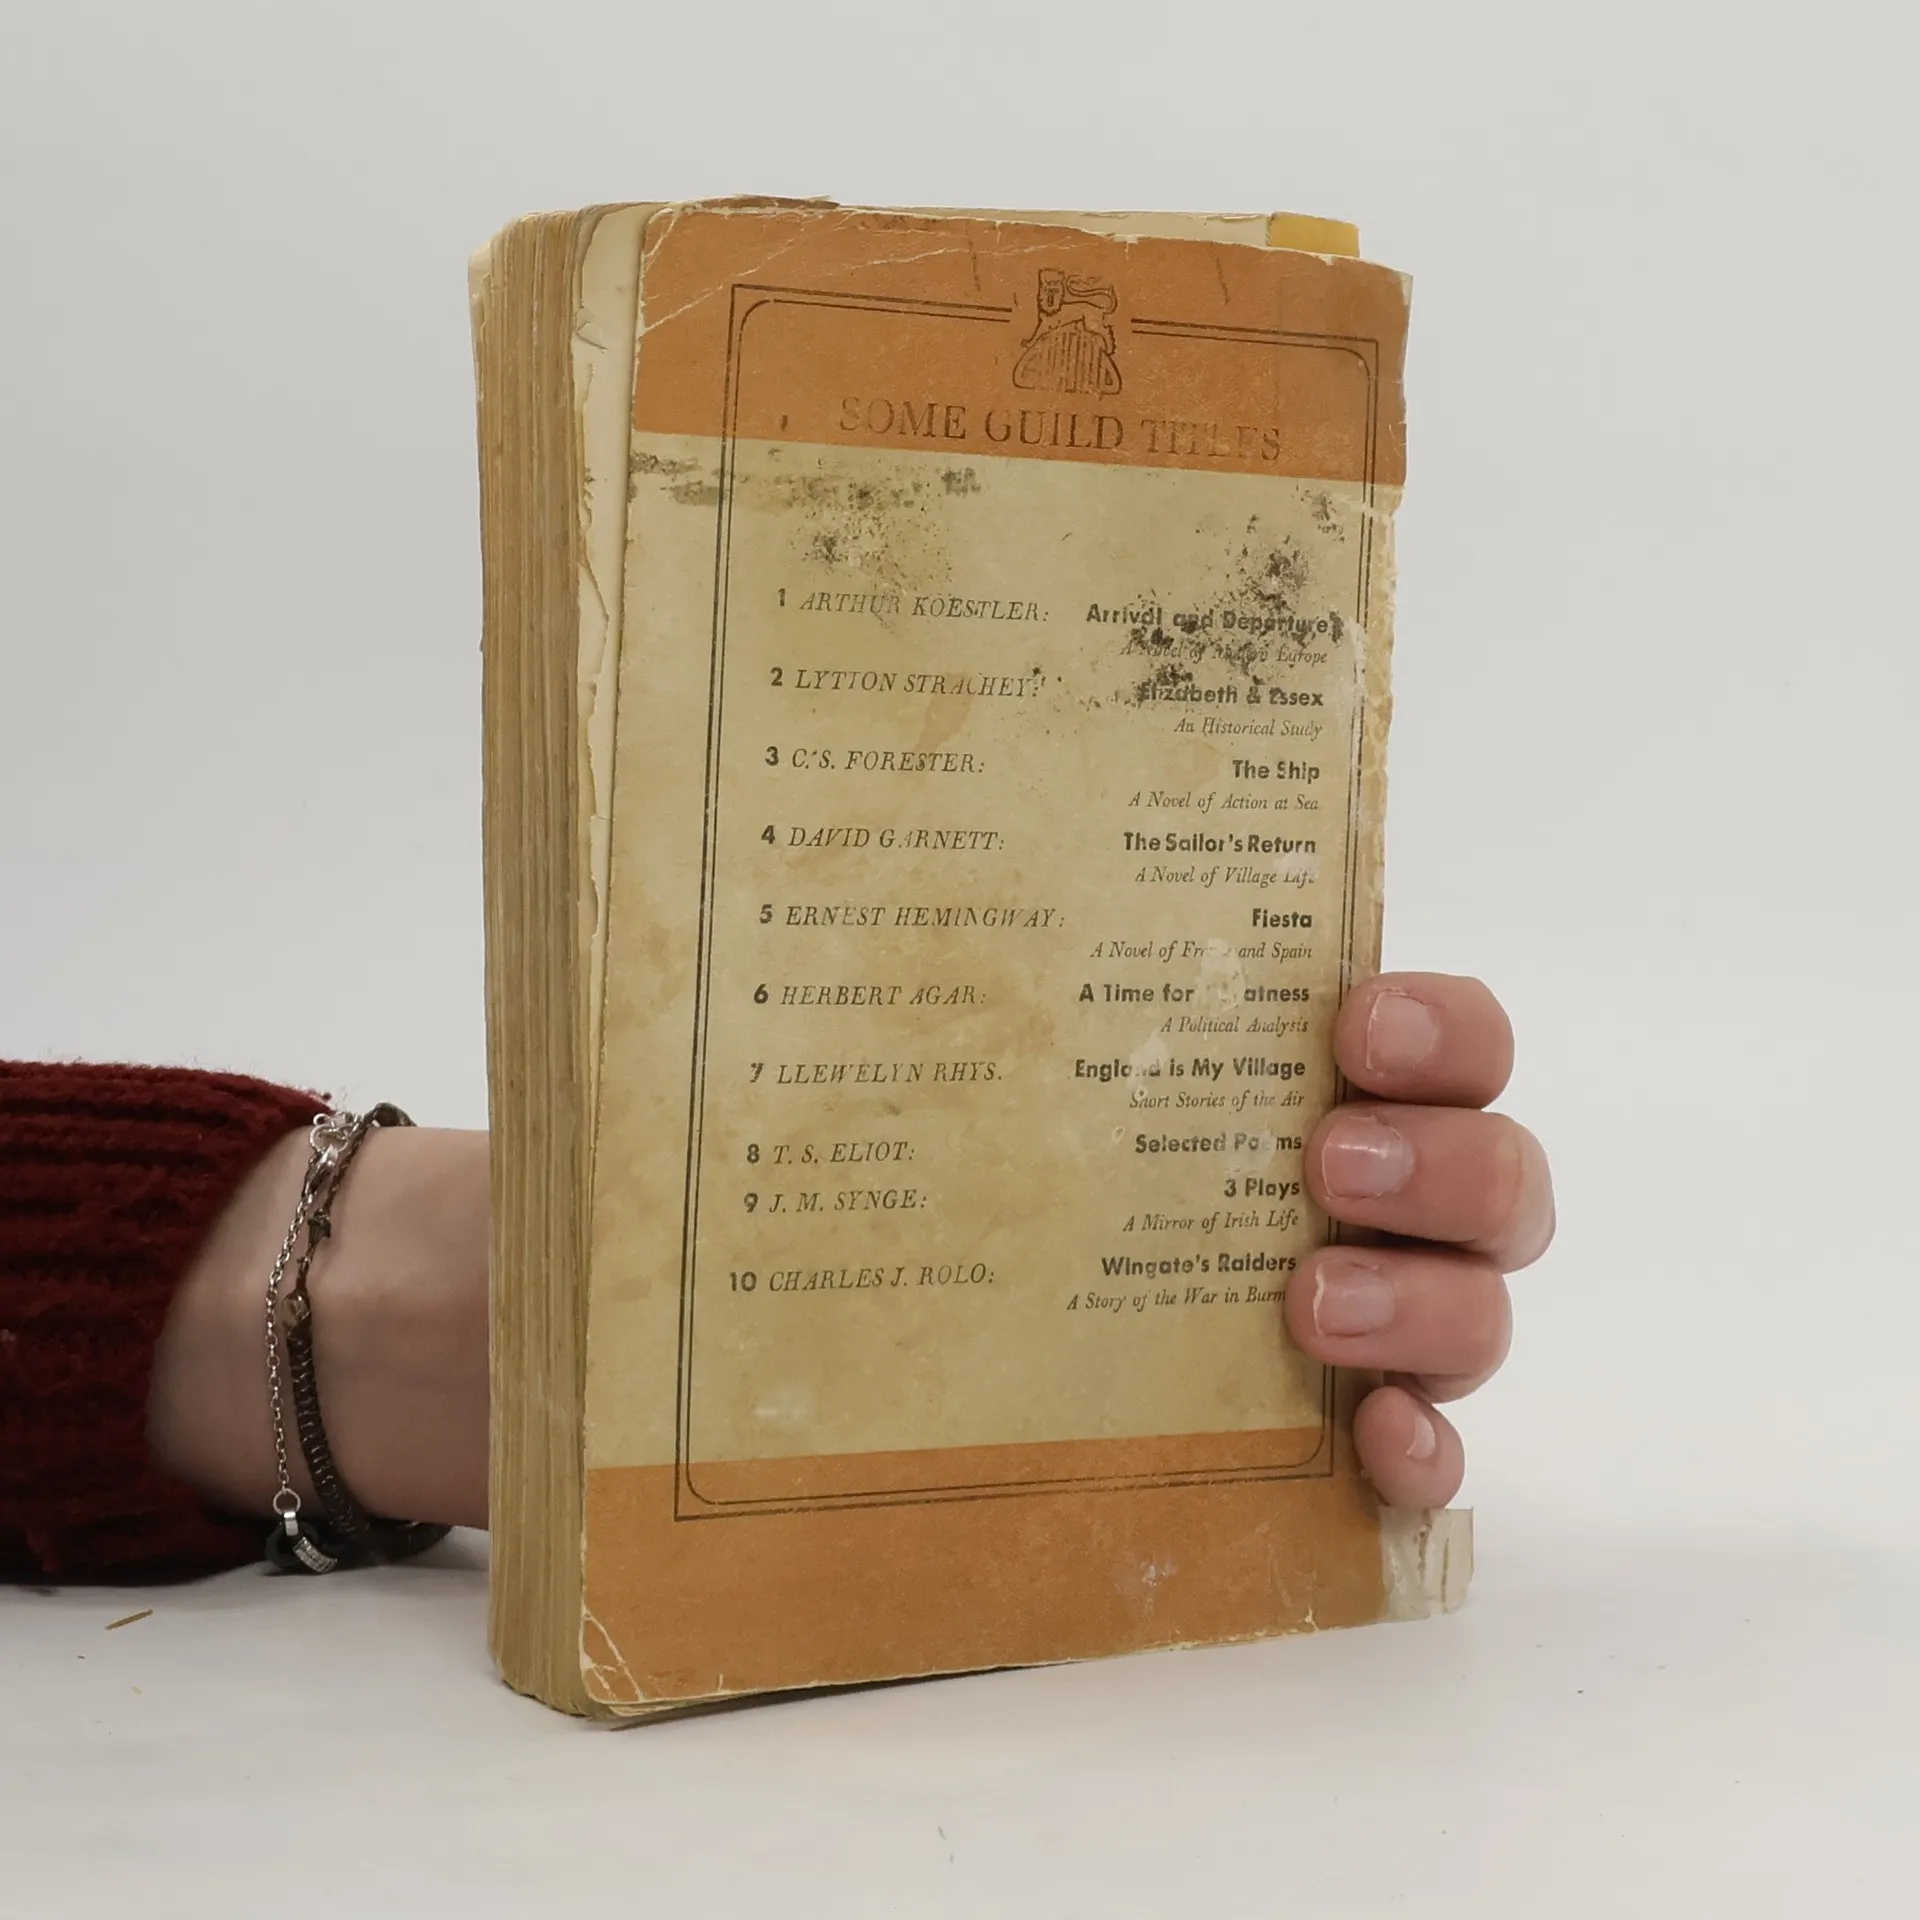 GUILD
SOME GUILD TITLES
1 ARTHUR KOESTLER: Arrival and Departure
A Novel of Europe
2 LYTTON STRACHEY: Elizabeth & Essex
An Historical Study
3 C. S. FORESTER: The Ship
A Novel of Action at Sea
4 DAVID GARNETT: The Sailor's Return
A Novel of Village Life
5 ERNEST HEMINGWAY: Fiesta
A Novel of France and Spain
6 HERBERT AGAR: A Time for Greatness
A Political Analysis
7 LLEWELYN RHYS. England is My Village
Short Stories of the Air
8 T. S. ELIOT: Selected Poems
9 J. M. SYNGE: 3 Plays
A Mirror of Irish Life
10 CHARLES J. ROLO: Wingate's Raiders
A Story of the War in Burm